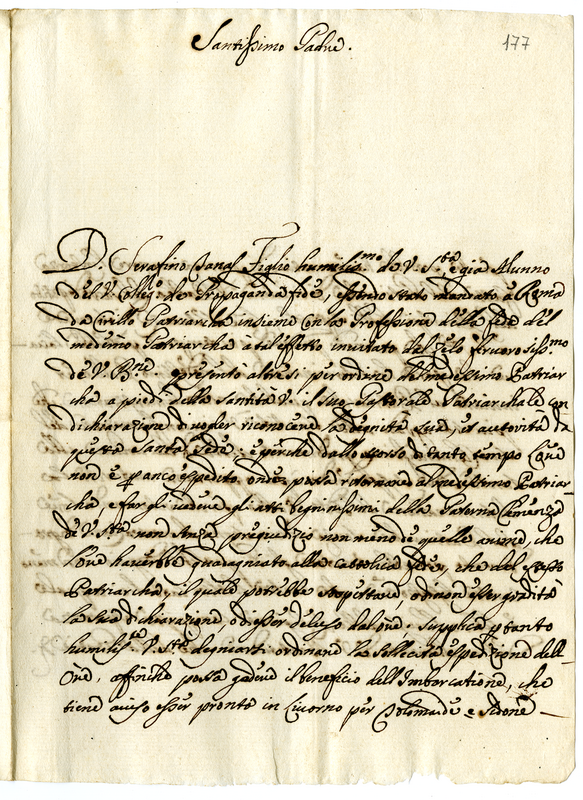 Santissimo Padre.
177
D. Serafino Tanas Figlio humiliss.mo de V. S.tà e già Alunno
del V. Colleg.o de Propaganda fide, essendo stato mandato à Roma
da Cirillo Patriarcha insieme con la Professione della fede del
medemo Patriarcha à tal effetto invitato dal zelo fervorosiss.mo
de V. B.ne presentò altresì per ordine del medessimo Patriar
cha a piedi della Santità V. il suo Pastorale Patriarchale con
dichiarazione di voler riconoscere la dignità sua, et autorità da
questa Santa Sede: e perche dallo spatio di tanto tempo l'Ore
non è p anco espedito onde possa ritornare al medessimo Patriar-
cha, e fargli vedere gli atti begnissimi della Paterna Clemenza
de V. S.tà non senza pregiudizio non meno de quelle anime, che
l'Ore haverebbe guadagniato alla cattolica fede, che del stesso
Patriarcha, il quale potrebbe sospettare, o di non esser gradita
la sua dichiarazione, o di esser deluso dal Ore. Supplica p tanto
humiliss.te V. S.tà degniarsi ordinare la sollecita espedizione dell
Ore, affinche possa godere il beneficio dell'Imbarcatione, che
tiene aviso esser pronta in Livorno per Tolomaide e Sidone